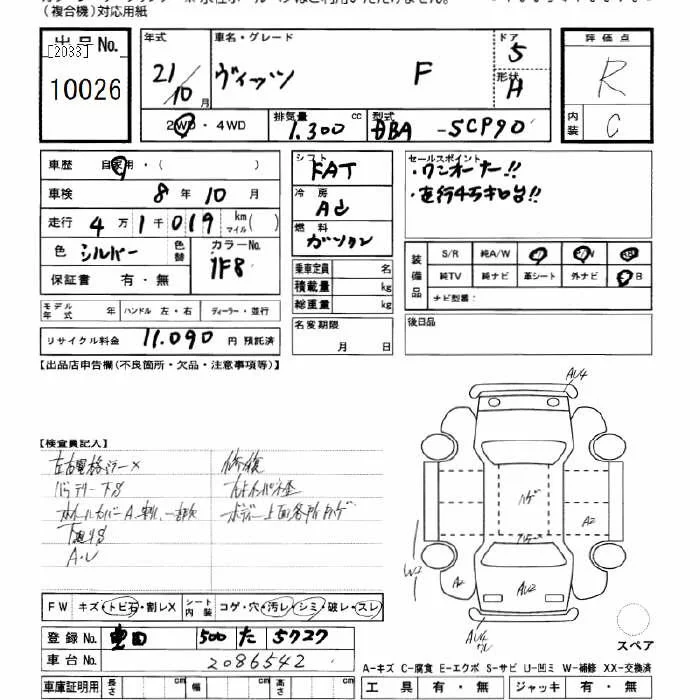 (複合機)対応用紙
出品No.
[2033]
10026
年式
21/10月
車名・グレード
ヴィッツ F
ドア
5
形状
H
評価点
R
内装
C
2WD・4WD
排気量 cc
1.300
型式
DBA -SCP90
車歴 自家用・( )
車検 8年 10月
走行 4万1千019 km マイル( )
色 シルバー
色替
カラーNo.
1F8
保証書 有・無
モデル年式 年 ハンドル 左・右 ディーラー・並行
リサイクル料金 11.090 円 預託済
シフト
FAT
冷房
AC
燃料
ガソリン
乗車定員 名
積載量 kg
総重量 kg
名変期限
月 日
セールスポイント
・ワンオーナー!!
・走行4万キロ台!!
装備品
S/R 純A/W
純TV 純ナビ 革シート 外ナビ
ナビ型番:
後日品
【出品店申告欄(不良箇所・欠品・注意事項等)】
【検査員記入】
左右電格ミラー×
バッテリー下S
ホイールカバーA
下廻りS
A・U
修復
ボディー上面各所ハゲ
AU4
ハゲ
A2
W2
A2
AU2
AU4
スペア
FW キズ・トビ石・割レX シート内装 コゲ・穴・汚レ・シミ・破レ・スレ
登録No. 豊田 500 た 5727
車台No. 2086542
車庫証明用 長さ cm 幅 cm 高さ cm
A-キズ C-腐食 E-エクボ S-サビ U-凹ミ W-補修 XX-交換済
工具 有・無 ジャッキ 有・無